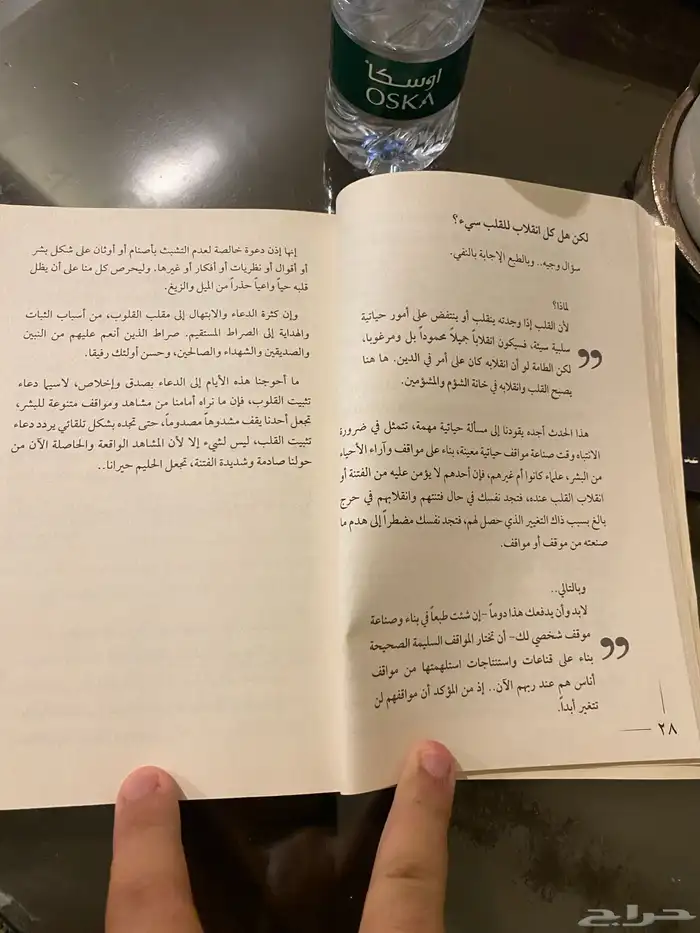 اوسكا
OSKA
لكن هل كل انقلاب للقلب سيء؟
سؤال وجيه.. وبالطبع الإجابة بالنفي.
لماذا؟
لأن القلب إذا وجدته ينقلب أو ينتفض على أمور حياتية
سلبية سيئة، فسيكون انقلاباً جميلاً محموداً بل ومرغوبا،
لكن الطامة لو أن انقلابه كان على أمر في الدين. ها هنا
يصبح القلب وانقلابه في خانة الشؤم والمشؤمين.
هذا الحدث أجده يقودنا إلى مسألة حياتية مهمة، تتمثل في ضرورة
الانتباه وقت صناعة مواقف حياتية معينة، بناء على مواقف وآراء الأحياء
من البشر، علماء كانوا أم غيرهم، فإن أحدهم لا يؤمن عليه من الفتنة أو
انقلاب القلب عنده، فتجد نفسك في حال فتنتهم وانقلابهم في حرج
بالغ بسبب ذاك التغيير الذي حصل لهم، فتجد نفسك مضطراً إلى هدم ما
صنعته من موقف أو مواقف.
وبالتالي..
لابد وأن يدفعك هذا دوماً -إن شئت طبعاً في بناء وصناعة
موقف شخصي لك- أن تختار المواقف السليمة الصحيحة
بناء على قناعات واستنتاجات استلهمتها من مواقف
أناس هم عند ربهم الآن.. إذ من المؤكد أن مواقفهم لن
تتغير أبداً.
٢٨
إنها إذن دعوة خالصة لعدم التشبث بأصنام أو أوثان على شكل بشر
أو أقوال أو نظريات أو أفكار أو غيرها. وليحرص كل منا على أن يظل
قلبه حياً واعياً حذراً من الميل والزيغ.
وإن كثرة الدعاء والابتهال إلى مقلب القلوب، من أسباب الثبات
والهداية إلى الصراط المستقيم. صراط الذين أنعم عليهم من النبين
والصديقين والشهداء والصالحين، وحسن أولئك رفيقا.
ما أحوجنا هذه الأيام إلى الدعاء بصدق وإخلاص، لاسيما دعاء
تثبيت القلوب، فإن ما نراه أمامنا من مشاهد ومواقف متنوعة للبشر،
تجعل أحدنا يقف مشدوهاً مصدوماً، حتى تجده بشكل تلقائي يردد دعاء
تثبيت القلب، ليس لشيء إلا لأن المشاهد الواقعة والحاصلة الآن من
حولنا صادمة وشديدة الفتنة، تجعل الحليم حيرانا..
حراج